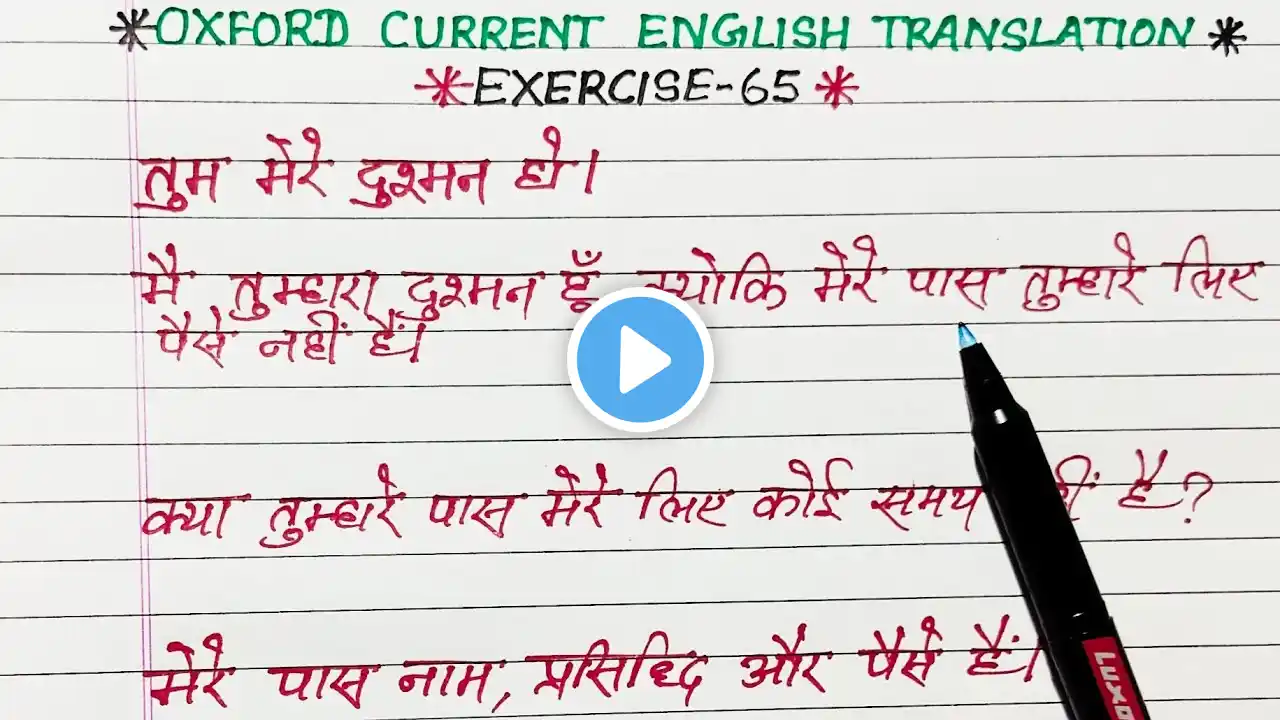 *OXFORD CURRENT ENGLISH TRANSLATION*
*EXERCISE-65*
तुम मेरे दुश्मन हो।
मै तुम्हारा दुश्मन हूँ क्योकि मेरे पास तुम्हारे लिए
पैसे नहीं हैं।
क्या तुम्हारे पास मेरे लिए कोई समय है?
मेरे पास नाम, प्रसिध्दि और पैसे हैं।